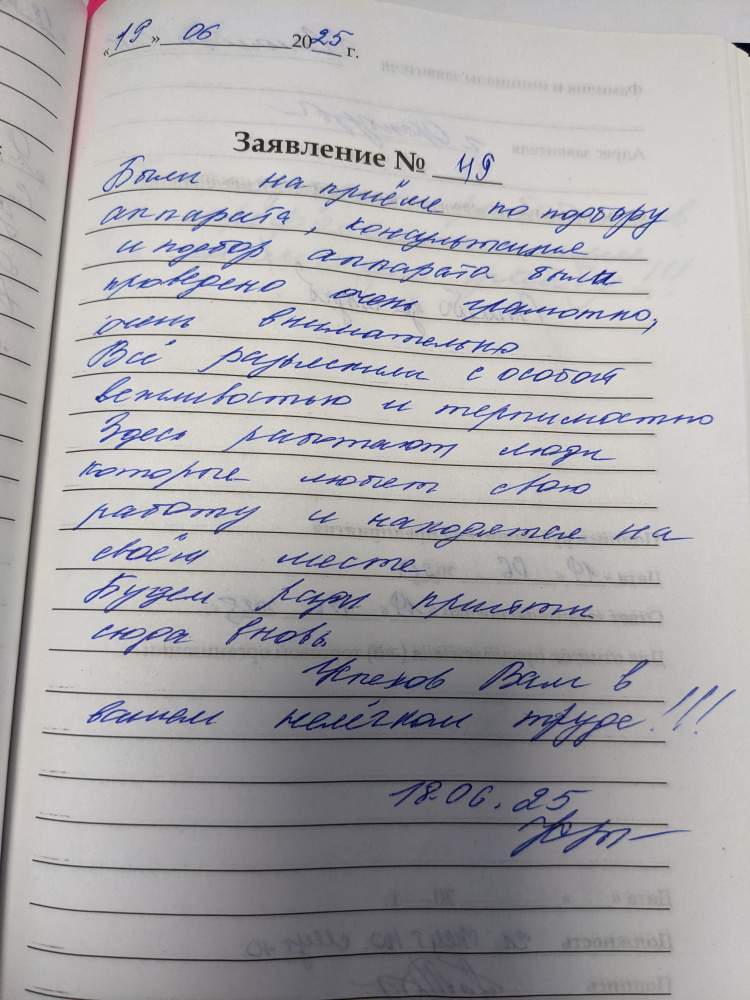 «19» 06 2025 г.
Заявление № 49
Были на приёме по подбору
аппарата, консультация
и подбор аппарата были
проведено очень грамотно,
очень внимательно
Всё разъяснили с особой
вежливостью и терпимостью
Здесь работают люди
которые любят свою
работу и находятся на
своём месте
Будем рады прийти
сюда вновь.
Успехов Вам в
вашем нелёгком труде!!!
18.06.25